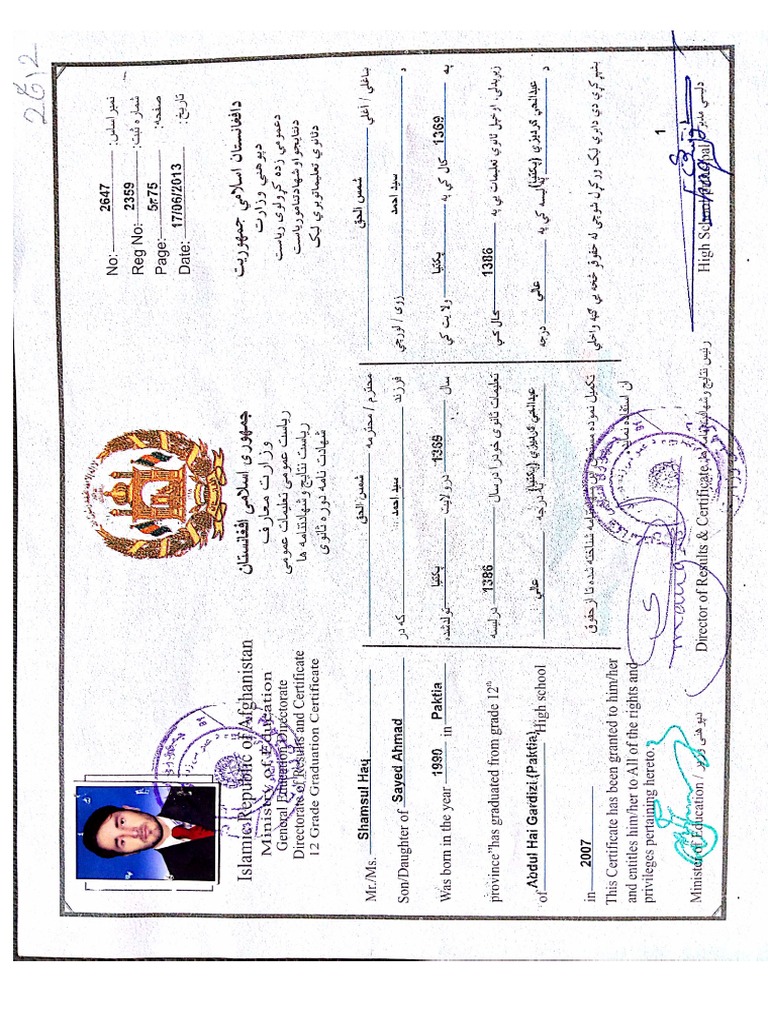 2612
No: 2647 نمبر اساس:
Reg No: 2359 شماره ثبت:
Page: 75 صفحه:
Date: 17/06/2013 تاریخ:
Islamic Republic of Afghanistan
Ministry of Education
General Education Directorate
Directorate of Results and Certificate
12 Grade Graduation Certificate
جمهوری اسلامی افغانستان
وزارت معارف
ریاست عمومی تعلیمات عمومی
ریاست نتایج و شهادتنامه ها
شهادت نامه دوره ثانوی
دافغانستان اسلامی جمهوریت
دپوهنی وزارت
دعمومی زده کړو لوی ریاست
دنتایجو او شهادتنامو ریاست
دثانوی تعلیماتو بری لیک
Mr./Ms. Shamsul Haq
Son/Daughter of Sayed Ahmad
Was born in the year 1990 in Paktia
province"has graduated from grade 12th
of Abdul Hai Gardizi (Paktia) High school
in 2007
This Certificate has been granted to him/her
and entitles him/her to All of the rights and
privileges pertaining hereto.
محترم / محترمه شمس الحق
فرزند سید احمد که در
سال 1369 در ولایت پکتیا تولد شده
تعلیمات ثانوی خود را در سال 1386 در لیسه
عبدالحی گردیزی (پکتیا) به درجه عالی
تکمیل نموده شناخته شده تا از حقوق
آن استفاده نماید
ښاغلی / اغلی شمس الحق
د سید احمد زوی / لورچی
په 1369 کال کی په پکتیا ولایت کی
زیږیدلی، اوخپل ثانوی تعلیمات یی په 1386 کال کی
د عبدالحی گردیزی (پکتیا) په لیسه کی په عالی درجه
1
Minister of Education / دپوهنی وزیر
Director of Results & Certificate رئیس نتایج و شهادتنامه ها
High School Principal دلیسی مدیر